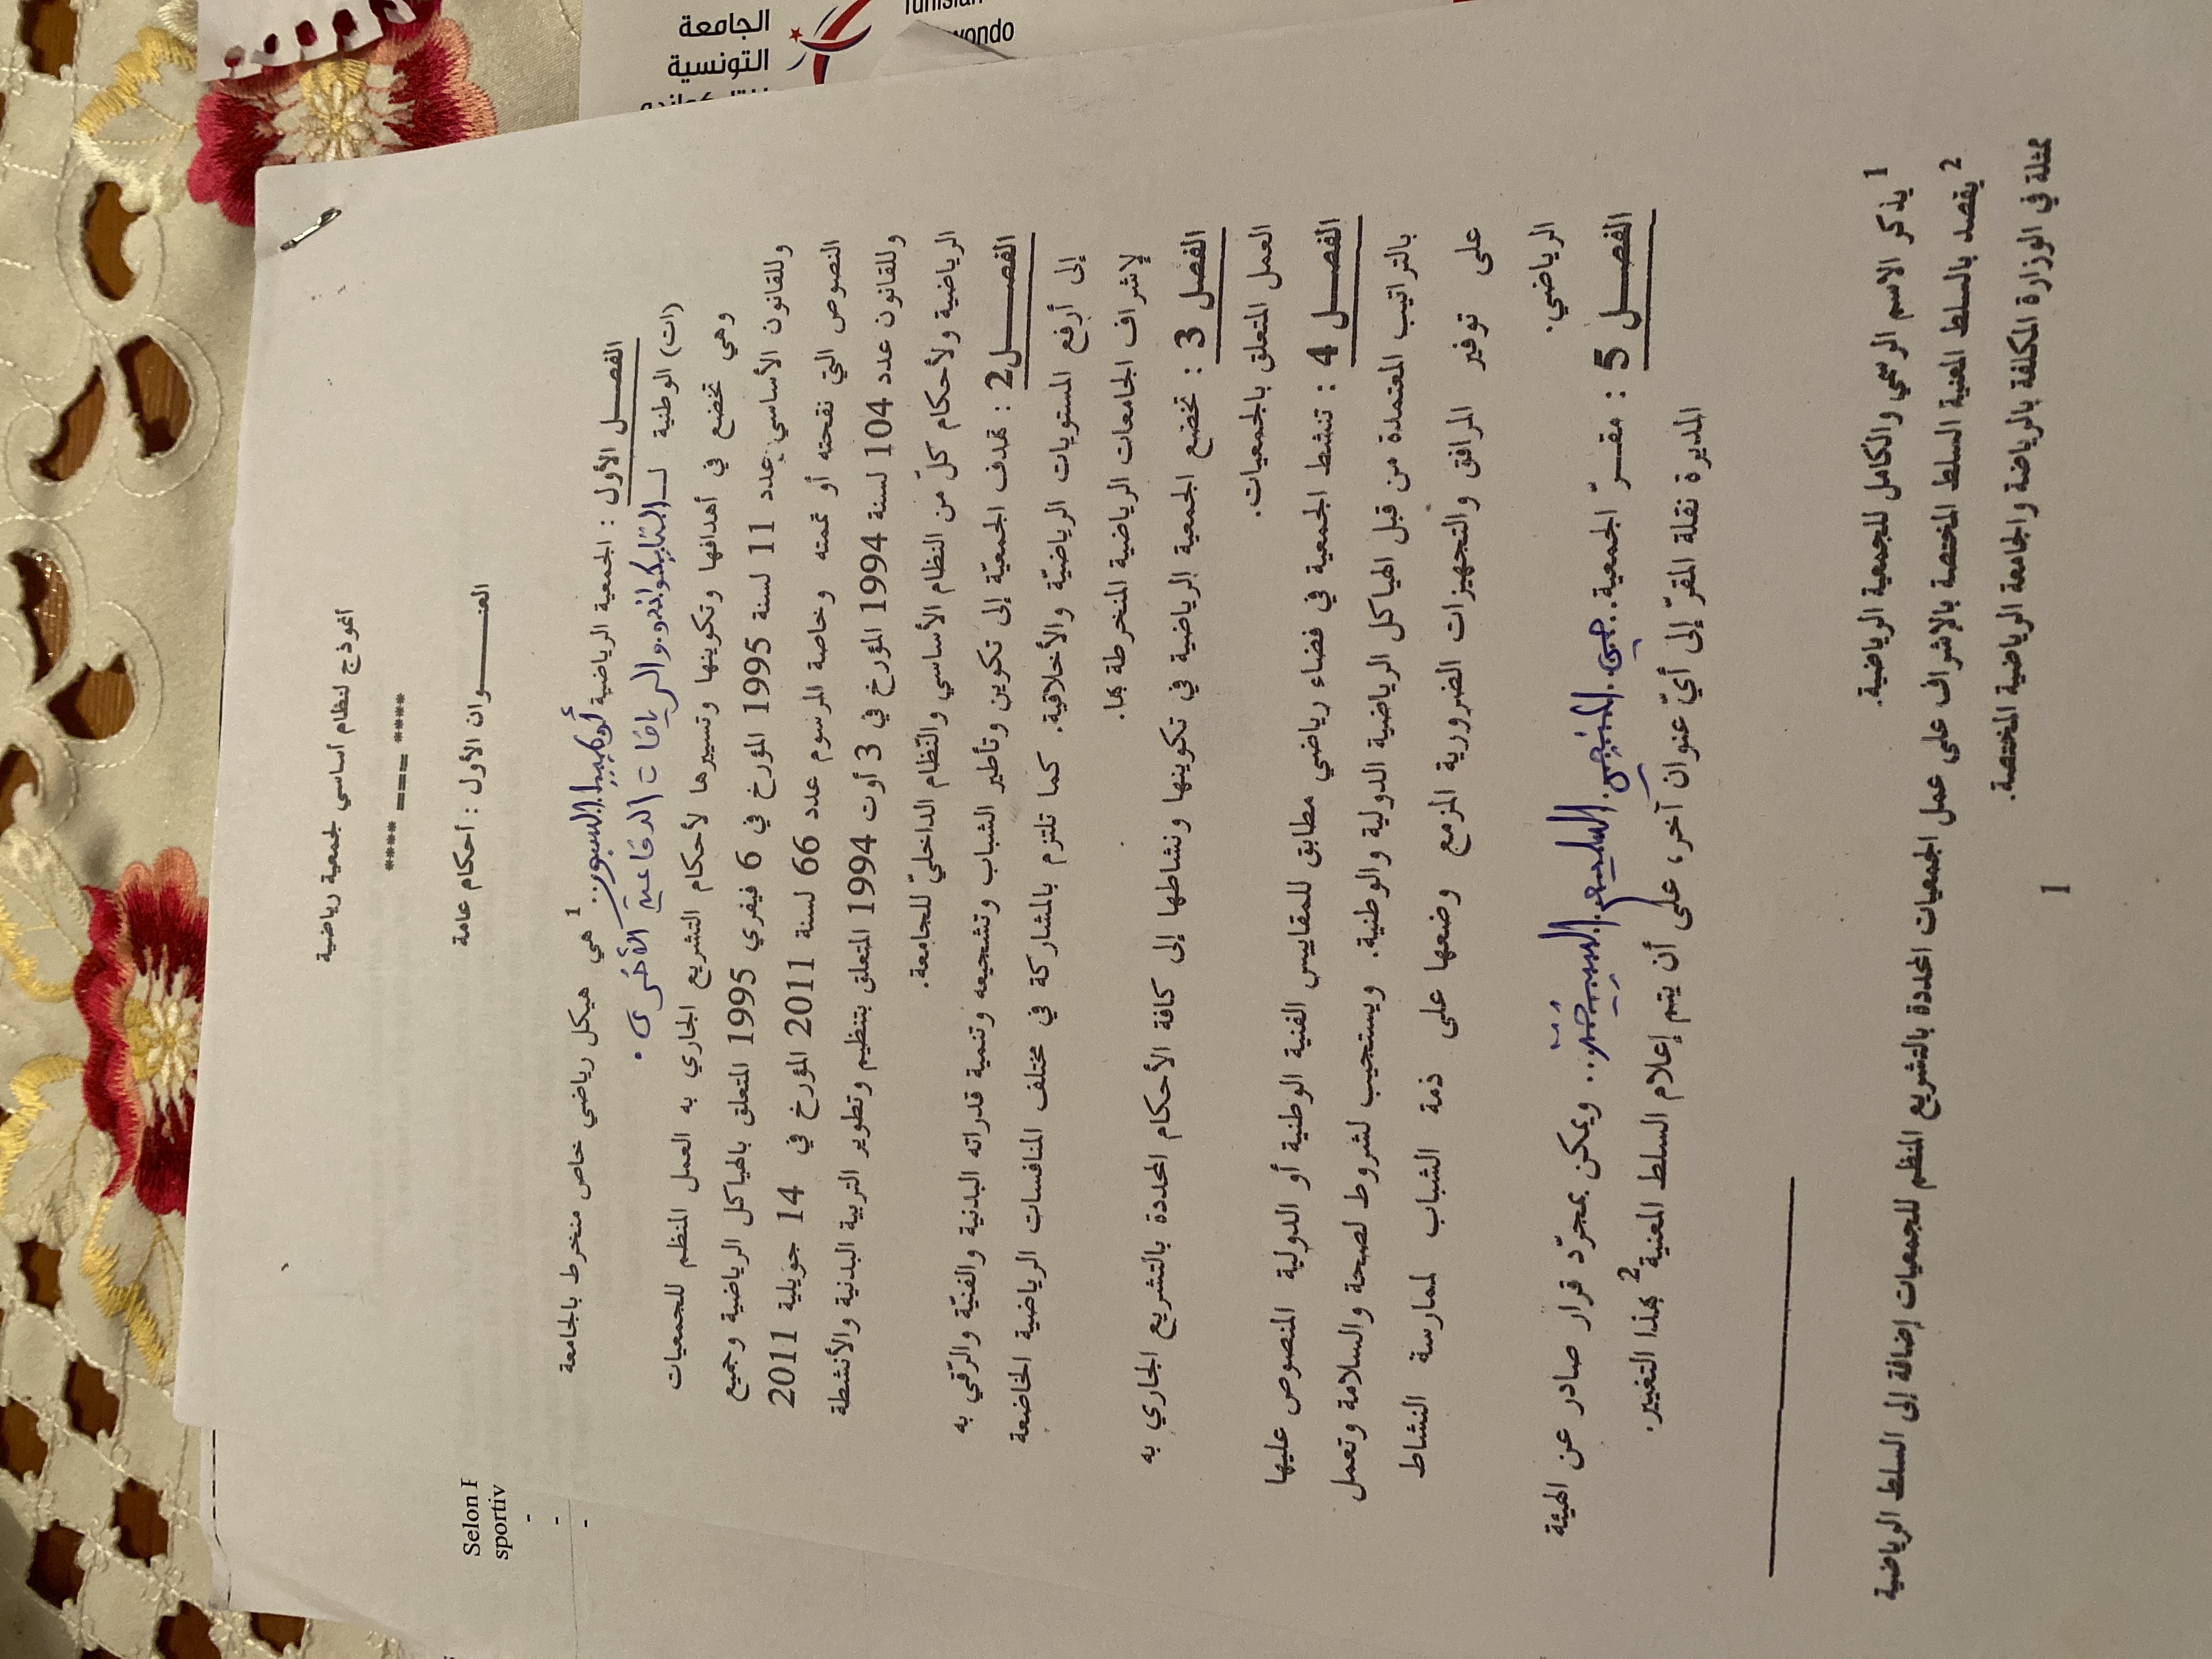 أنموذج لنظام أساسي لجمعية رياضية
**** === ****
العنـــــــوان الأول : أحكام عامة
الفصـــل الأول : الجمعية الرياضية أولمبيا السبورت 1 هي هيكل رياضي خاص منخرط بالجامعة
(ات) الوطنية لـ التايكواندو والرياضات الدفاعية الأخرى.
وهي تخضع في أهدافها وتكوينها وتسييرها لأحكام التشريع الجاري به العمل المنظم للجمعيات
وللقانون الأساسي عدد 11 لسنة 1995 المؤرخ في 6 فيفري 1995 المتعلق بالهياكل الرياضية وجميع
النصوص التي نقحته أو تممته وخاصة المرسوم عدد 66 لسنة 2011 المؤرخ في 14 جويلية 2011
وللقانون عدد 104 لسنة 1994 المؤرخ في 3 أوت 1994 المتعلق بتنظيم وتطوير التربية البدنية والأنشطة
الرياضية ولأحكام كلّ من النظام الأساسي والنّظام الداخليّ للجامعة.
الفصـــل2 : تهدف الجمعيّة إلى تكوين وتأطير الشباب وتشجيعه وتنمية قدراته البدنية والفنيّة والرّقي به
إلى أرفع المستويات الرياضيّة والأخلاقية. كما تلتزم بالمشاركة في مختلف المنافسات الرياضية الخاضعة
لإشراف الجامعات الرياضية المنخرطة بها.
الفصل 3 : تخضع الجمعية الرياضية في تكوينها ونشاطها إلى كافة الأحكام المحددة بالتشريع الجاري به
العمل المتعلق بالجمعيات.
الفصـــل 4 : تنشط الجمعية في فضاء رياضي مطابق للمقاييس الفنية الوطنية أو الدولية المنصوص عليها
بالتراتيب المعتمدة من قبل الهياكل الرياضية الدولية والوطنية. ويستجيب لشروط لصحة والسلامة وتعمل
على توفير المرافق والتجهيزات الضرورية المزمع وضعها على ذمة الشباب لممارسة النشاط
الرياضي.
الفصـــل 5 : مقــرّ الجمعية حي ويمكن بمجرّد قرار صادر عن الهيئة
المديرة نقلة المقرّ إلى أيّ عنوان آخر، على أن يتم إعلام السلط المعنية 2 بهذا التغيير.
1 يذكر الاسم الرسمي والكامل للجمعية الرياضية.
2 يقصد بالسلط المعنية السلط المختصة بالإشراف على عمل الجمعيات المحددة بالتشريع المنظم للجمعيات إضافة إلى السلط الرياضية
ممثلة في الوزارة المكلفة بالرياضة والجامعة الرياضية المختصة.
1
الجامعة
التونسية
Tunisian
Selon l
sportiv
-
-
-